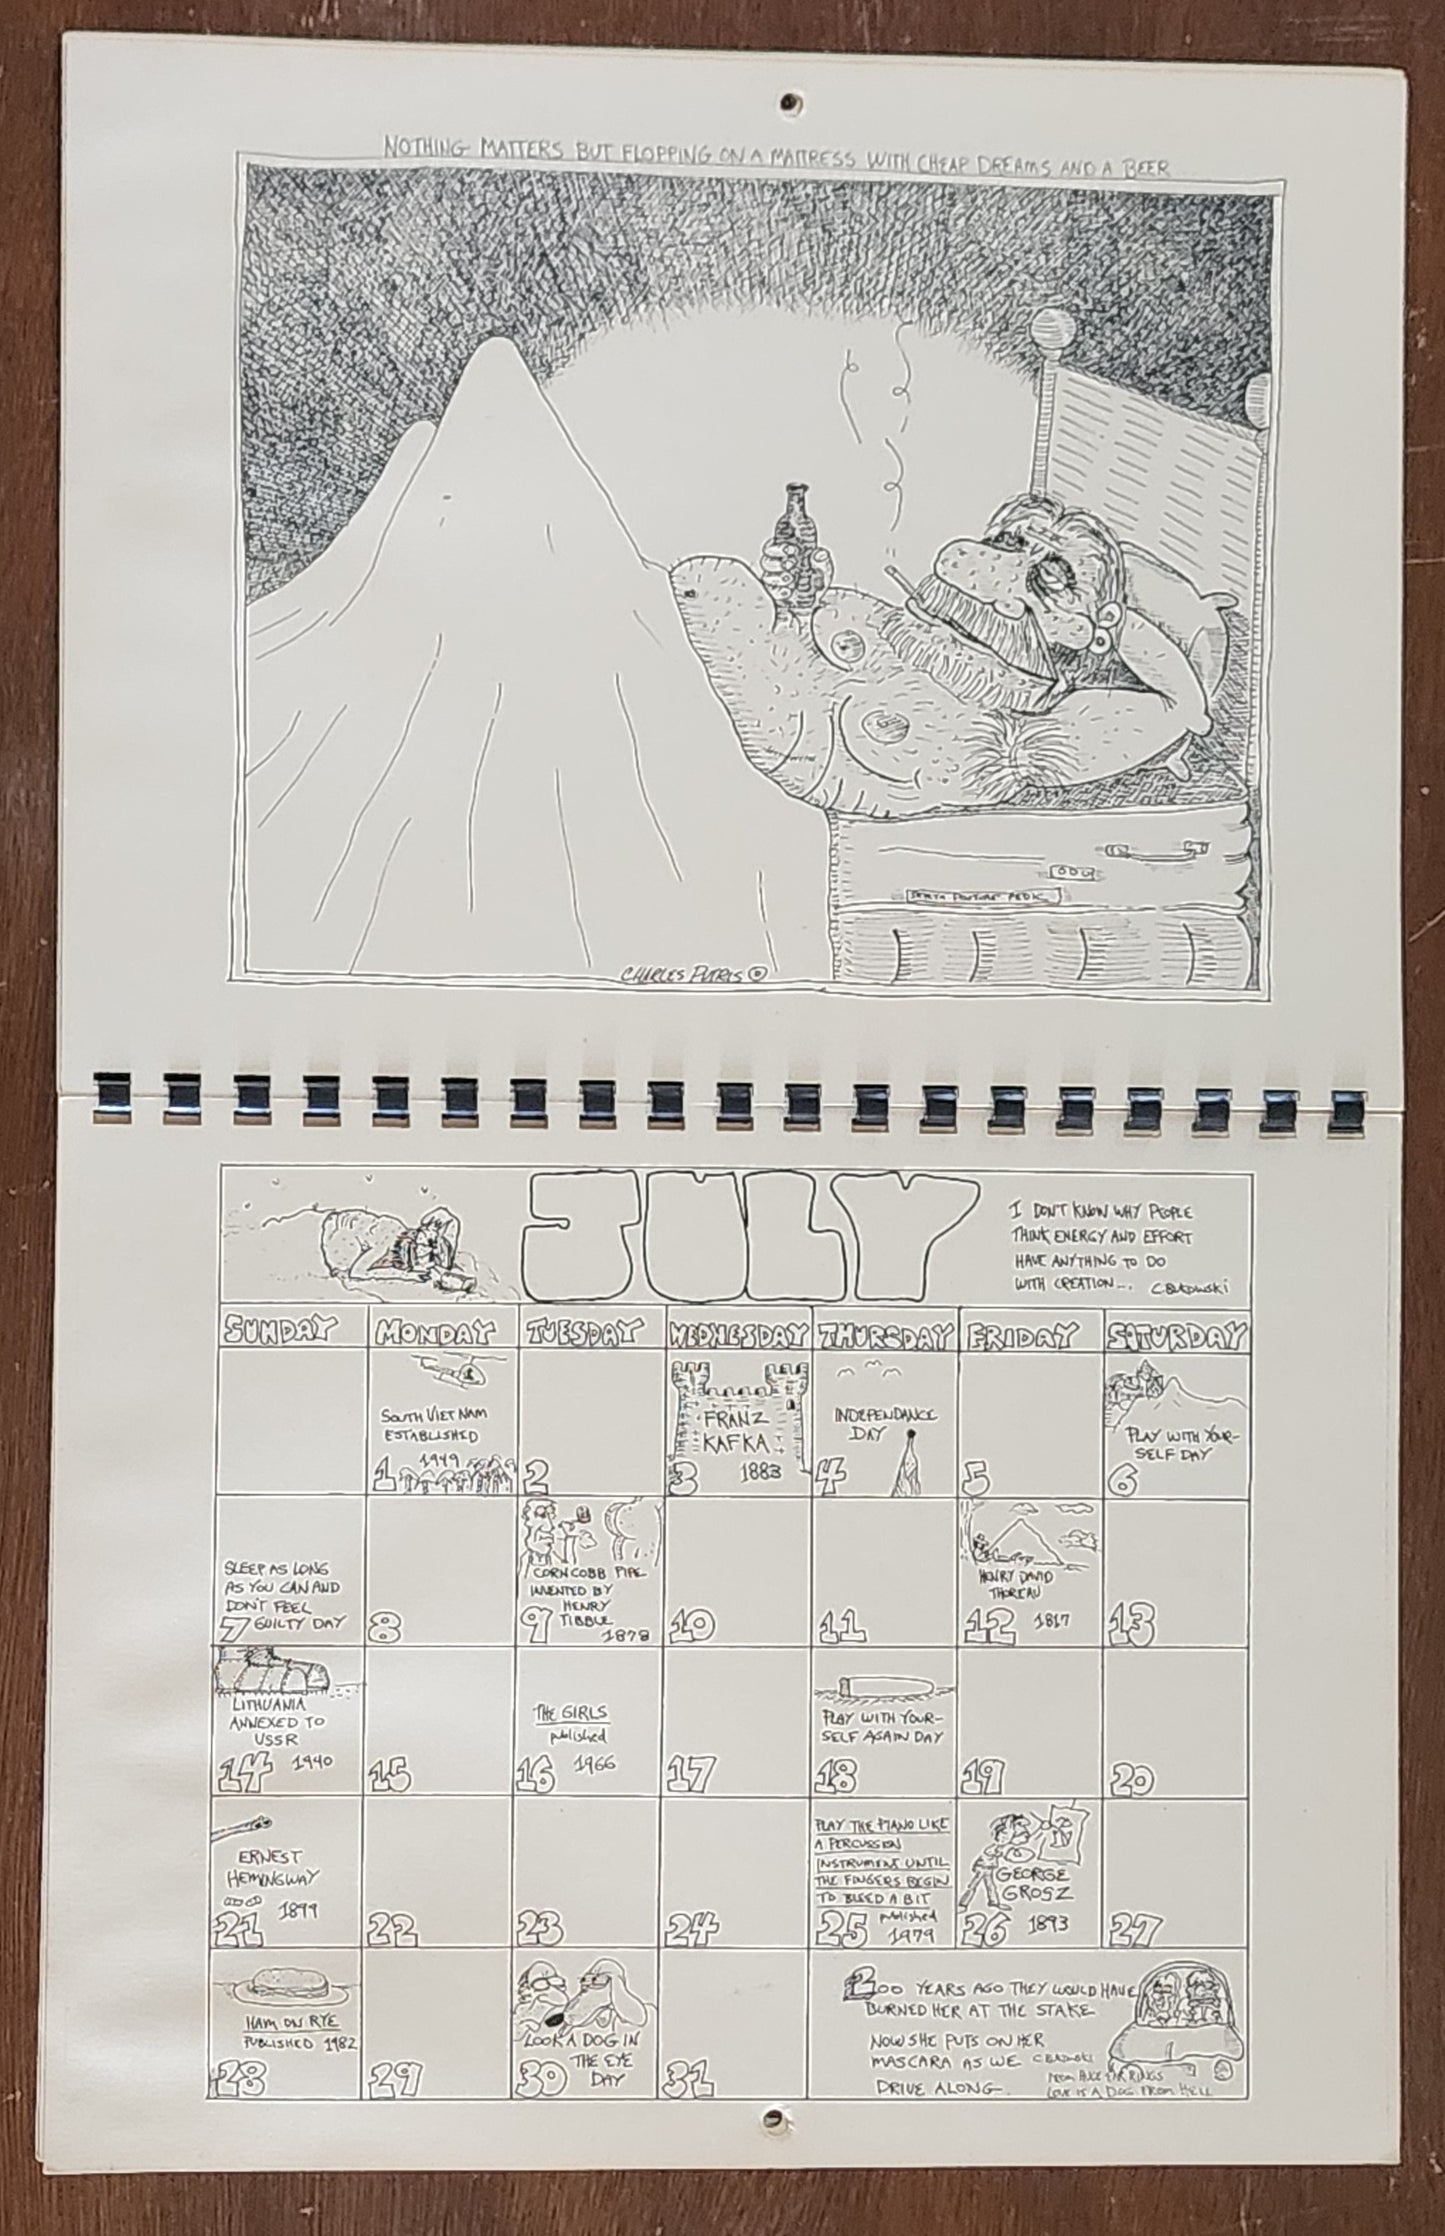 NOTHING MATTERS BUT FLOPPING ON A MATTRESS WITH CHEAP DREAMS AND A BEER
POSTURE PEDIC
CHARLES PUTRIS ©
JULY
I DON'T KNOW WHY PEOPLE
THINK ENERGY AND EFFORT
HAVE ANYTHING TO DO
WITH CREATION... C BUKOWSKI
SUNDAY MONDAY TUESDAY WEDNESDAY THURSDAY FRIDAY SATURDAY
SOUTH VIET NAM
ESTABLISHED
1949
1
2
FRANZ
KAFKA
3 1883
INDEPENDANCE
DAY
4
5
PLAY WITH YOUR-
SELF DAY
6
SLEEP AS LONG
AS YOU CAN AND
DON'T FEEL
7 GUILTY DAY
8
CORNCOBB PIPE
INVENTED BY
HENRY
9 TIBBLE
1878
10
11
HENRY DAVID
THOREAU
12 1817
13
LITHUANIA
ANNEXED TO
USSR
14 1940
15
THE GIRLS
published
16 1966
17
PLAY WITH YOUR-
SELF AGAIN DAY
18
19
20
ERNEST
HEMINGWAY
21 1899
22
23
24
PLAY THE PIANO LIKE
A PERCUSSION
INSTRUMENT UNTIL
THE FINGERS BEGIN
TO BLEED A BIT
25 published
1979
GEORGE
GROSZ
26 1893
27
HAM ON RYE
PUBLISHED 1982
28
29
LOOK A DOG IN
THE EYE
30 DAY
31
200 YEARS AGO THEY WOULD HAVE
BURNED HER AT THE STAKE
NOW SHE PUTS ON HER
MASCARA AS WE C BUKOWSKI
DRIVE ALONG.
FROM HUGE EAR RINGS
LOVE IS A DOG FROM HELL